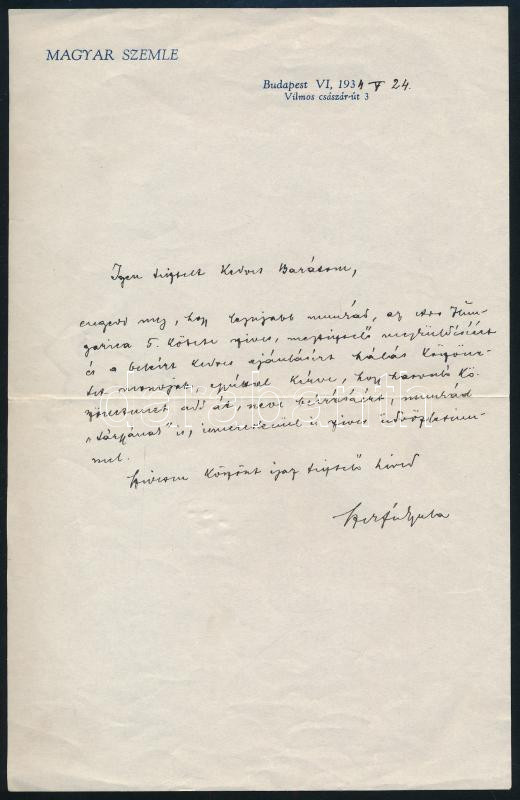 MAGYAR SZEMLE
Budapest VI, 1934 V 24.
Vilmos császár-út 3
Igen tisztelt Kedves Barátom,
engedd meg, hogy legújabb munkád, az
5. kötete szíves, megtisztelő megküldéséért
és a beleírt kedves ajánlásért hálás köszöne-
tet mondjak, egyúttal kérve, hogy hasonló kö-
szönetemet add át, neve beírásáért, munkád
is, ismeretlenül is szíves üdvözletem-
mel.
Szívesen köszönt igaz tisztelő híved
Szekfű Gyula
darabanth